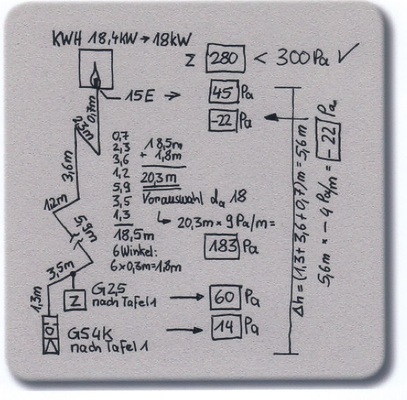 KWH 18,4KW → 18KW
Σ 280 < 300 Pa ✓
45 Pa
15E →
-22 Pa
0,7m
2,3m
3,6m
1,2m
5,9m
3,5m
1,3m
0,7
2,3
3,6
1,2
5,9
3,5
1,3
18,5m
6 Winkel:
6 x 0,3m = 1,8m
18,5m
+ 1,8m
20,3m
Vorauswahl da 18
↳ 20,3m x 9 Pa/m =
183 Pa
Z
G2,5
nach Tafel 1
→ 60 Pa
G54K
nach Tafel 1
→ 14 Pa
Δh = (1,3 + 3,6 + 0,7)m = 5,6m
5,6m x -4 Pa/m = -22 Pa